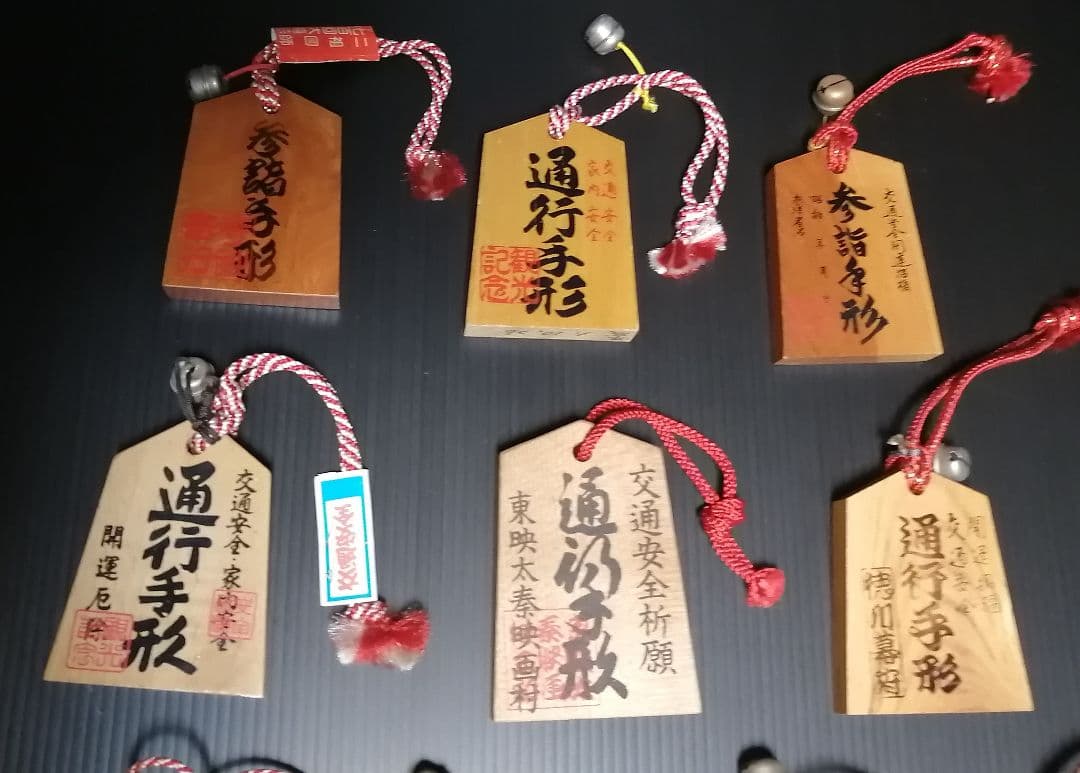 参詣手形
交通安全
家内安全
通行手形
観光
記念
交通安全開運招福
参詣手形
昭和 年 月 日
交通安全・家内安全
通行手形
開運厄除
観光
交通安全
交通安全祈願
通行手形
東映太秦映画村
開運招福
交通安全
通行手形
徳川幕府